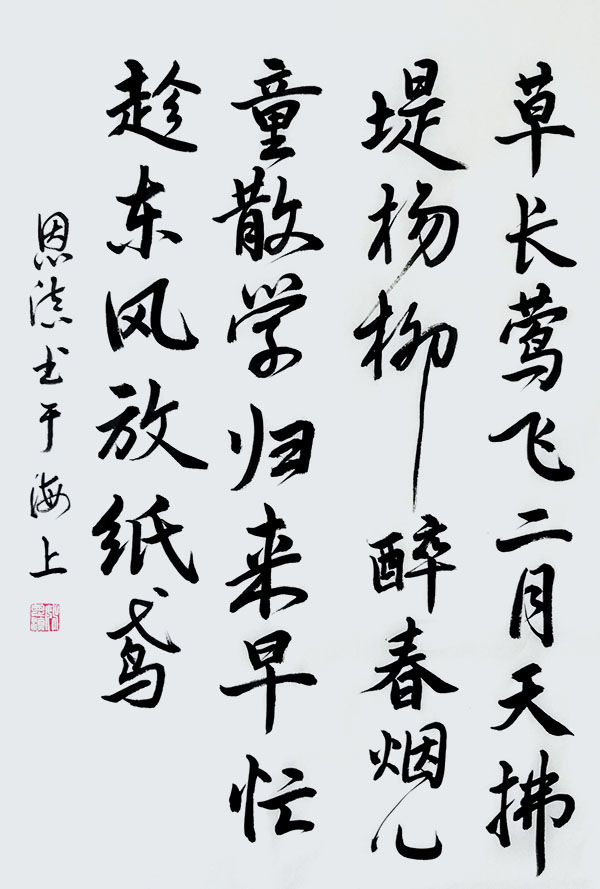 草长莺飞二月天拂
堤杨柳醉春烟儿
童散学归来早忙
趁东风放纸鸢
恩滨书于海上